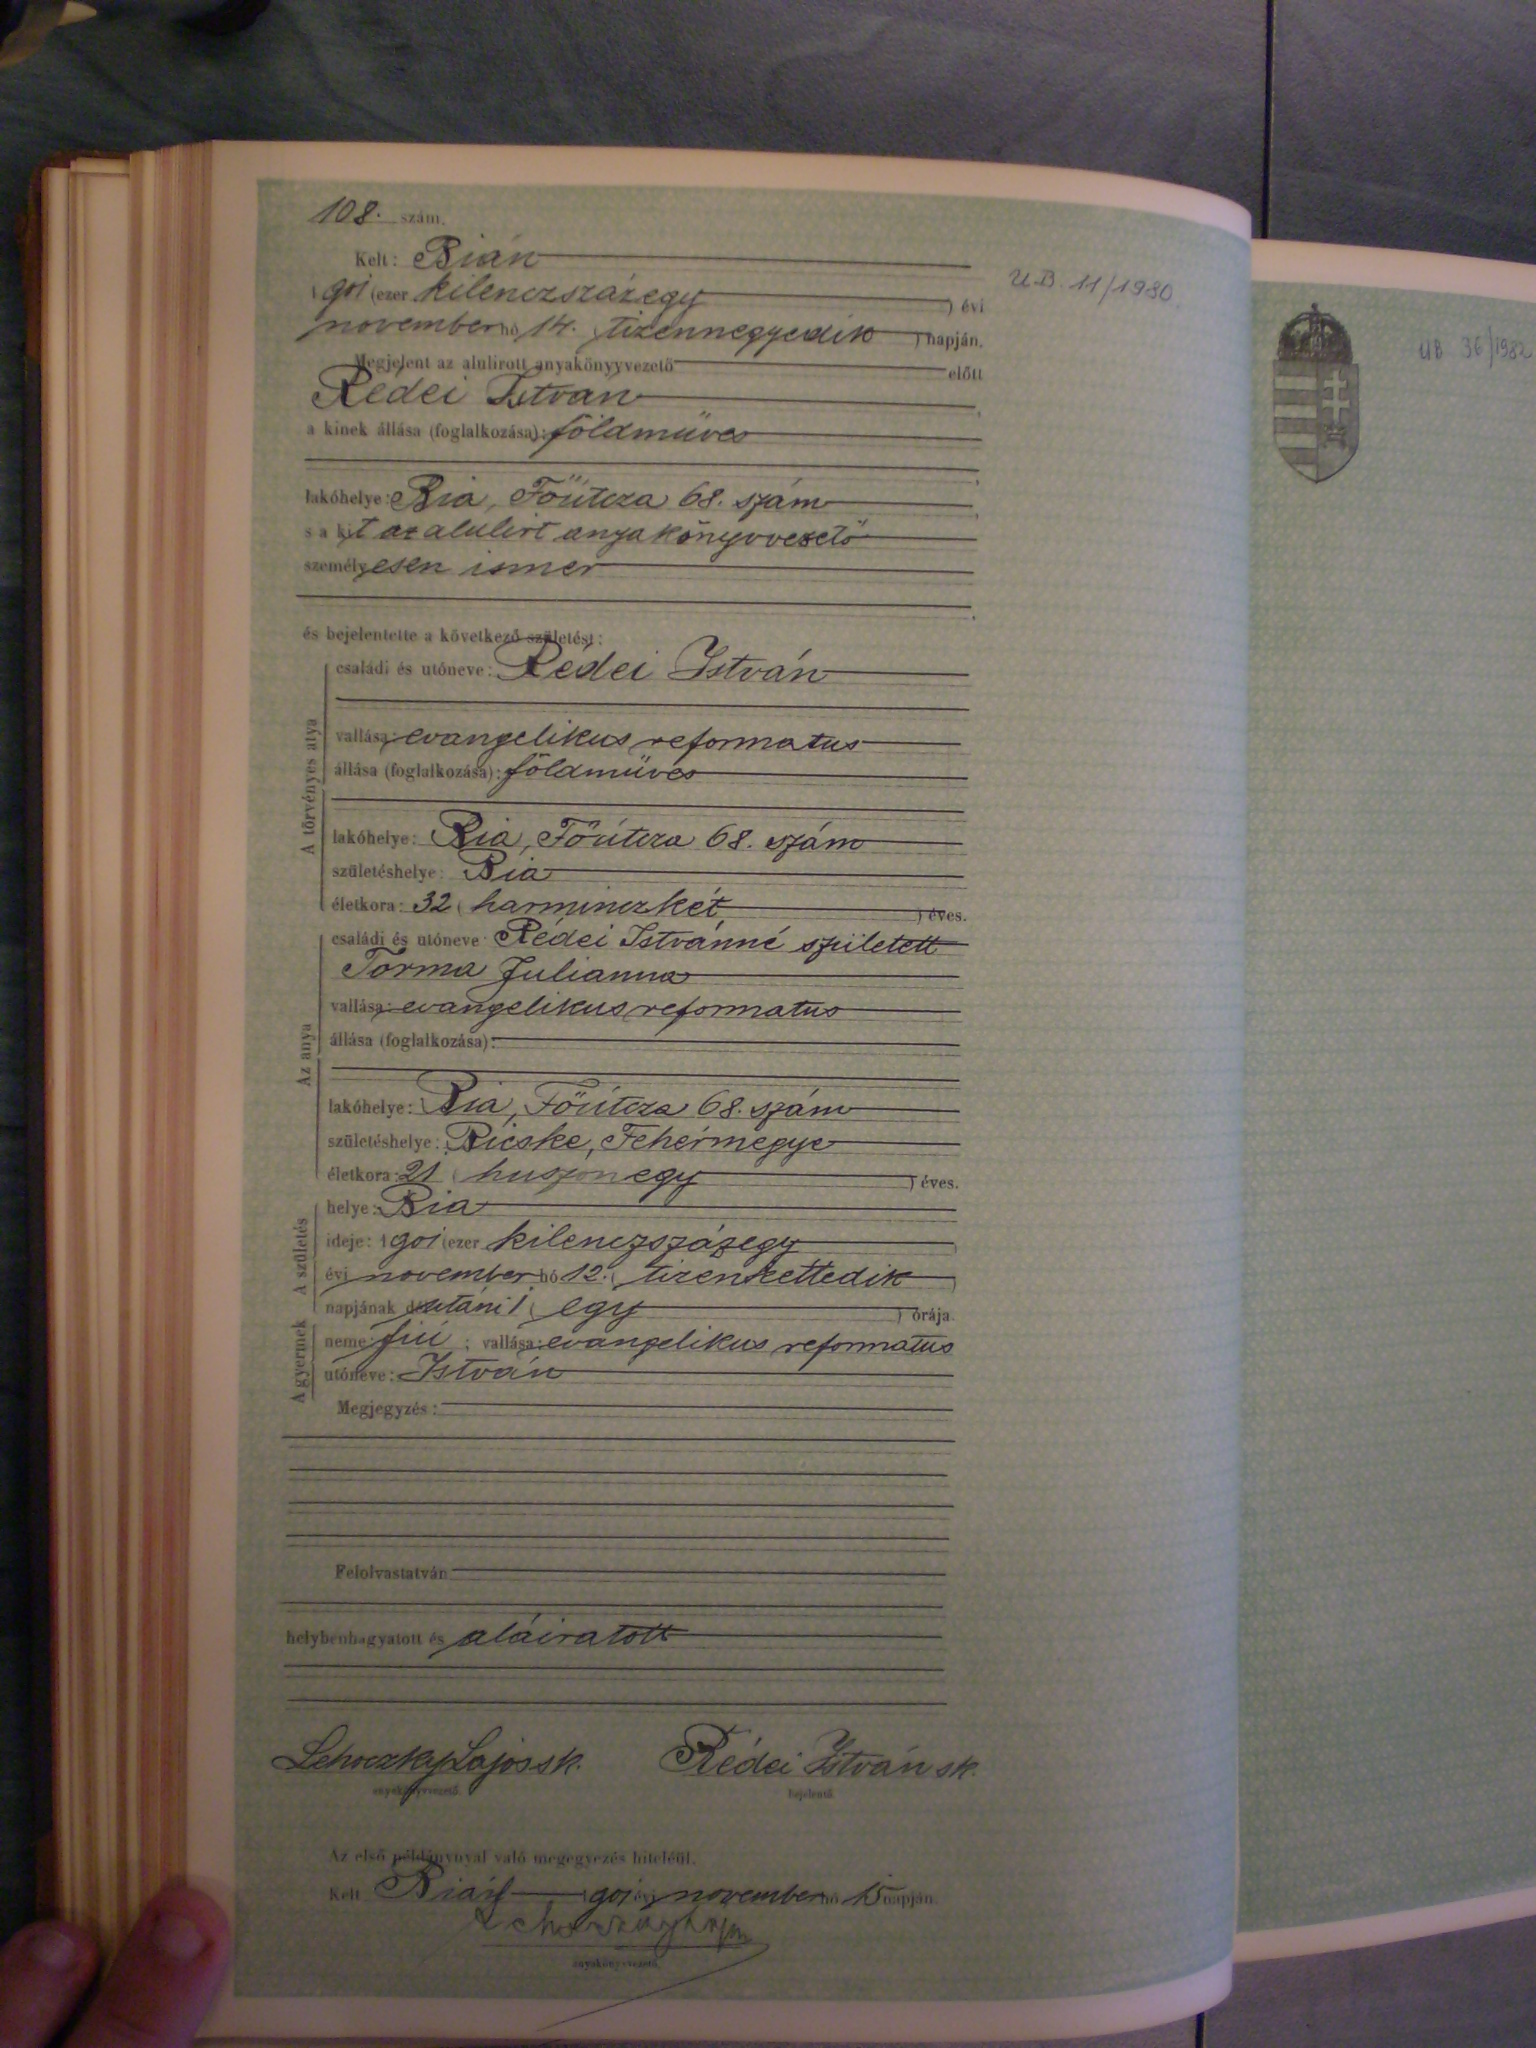 108. szám.
Kelt: Bián
1901 (ezer kilenczszázegy) évi
november hó 14. (tizennegyedik) napján.
Megjelent az alulirott anyakönyvvezető előtt
Rédei István,
a kinek állása (foglalkozása): földmüves
lakóhelye: Bia, Főútcza 68. szám,
s a kit az alulirt anyakönyvvezető
személyesen ismer
és bejelentette a következő születést:
A törvényes atya
családi és utóneve: Rédei István
vallása: evangelikus reformatus
állása (foglalkozása): földmüves
lakóhelye: Bia, Főútcza 68. szám
születéshelye: Bia
életkora: 32 (harminczkét) éves.
Az anya
családi és utóneve: Rédei Istvánné született
Torma Julianna
vallása: evangelikus reformatus
állása (foglalkozása):
lakóhelye: Bia, Főútcza 68. szám
születéshelye: Bicske, Fehérmegye
életkora: 21 (huszonegy) éves.
A születés
helye: Bia
ideje: 1901 (ezer kilenczszázegy)
évi november hó 12. (tizenkettedik)
napjának délutáni 1 (egy) órája.
A gyermek
neme: fiú; vallása: evangelikus reformatus
utóneve: István
Megjegyzés:
Felolvastatván
helybenhagyatott és aláiratott
Lehoczky Lajos sk. Rédei István sk.
anyakönyvvezető. bejelentő.
Az első példánynyal való megegyezés hiteléül.
Kelt Bián 1901 évi november hó 15 napján.
Lehoczky Lajos
anyakönyvvezető.
U.B. 11/1980.
UB 36/1982